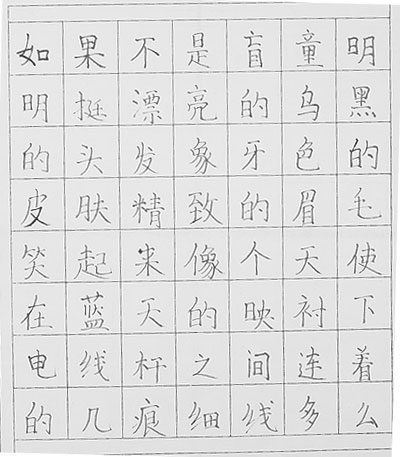 如果不是盲童明
明挺漂亮的乌黑
的头发象牙色的
皮肤精致的眉毛
笑起来像个天使
在蓝天的映衬下
电线杆之间连着
的几痕细线多么